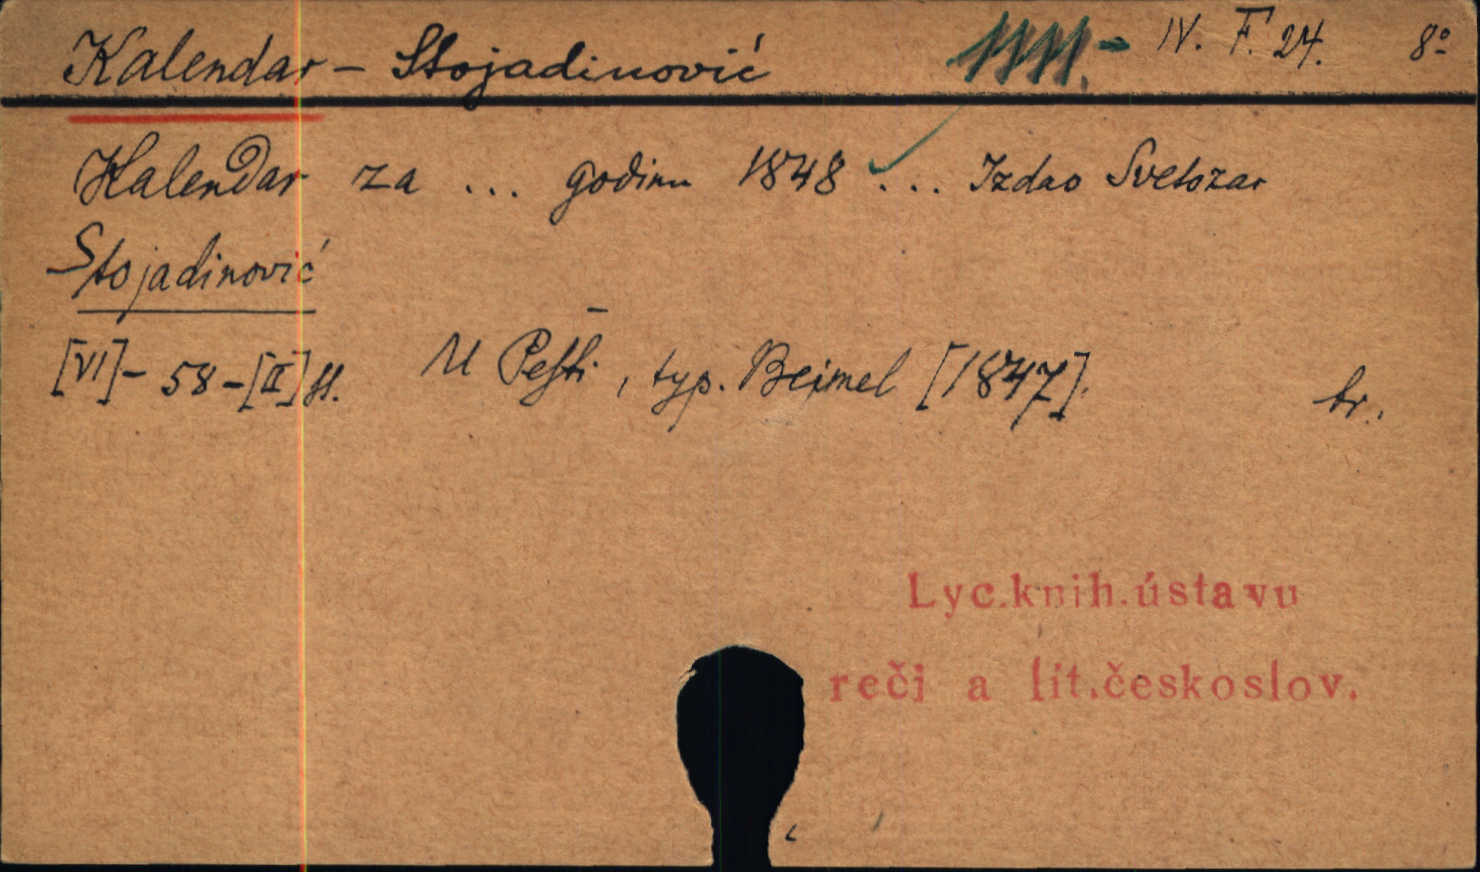 Kalendar - Stojadinović IV. F. 24. 8°
Kalendar za ... godinu 1848 ... Izdao Svetozar
Stojadinović
[VI] - 58 - [II] st. U Pešti, typ. Beimel [1847]. br.
Lyc.knih.ústavu
reči a lit.českoslov.